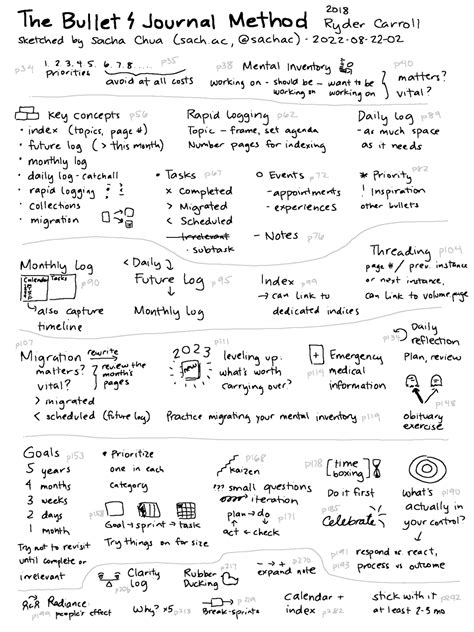 The Bullet Journal Method 2018 Ryder Carroll
sketched by Sacha Chua (sach.ac, @sachac) - 2022-08-22-02
p34 1. 2. 3. 4. 5. 6. 7. 8..... p35
priorities avoid at all costs
p38 Mental Inventory p40
working on - should be working on - want to be working on
matters?
vital?
Key concepts p56
• index (topics, page #)
• future log (> this month)
• monthly log
• daily log - catchall
• rapid logging
• collections
• migration
Rapid Logging p62
Topic - frame, set agenda
Number pages for indexing
Daily log p89
- as much space
as it needs
• Tasks p67
x Completed
> Migrated
< Scheduled
Irrelevant
• subtask
o Events p72
- appointments
- experiences
- Notes p76
* Priority p82
! Inspiration
other bullets
Monthly Log
Calendar Tasks
p90
also capture
timeline
< Daily >
Future Log p95
Monthly Log
Index p99
→ can link to
dedicated indices
Threading p104
page #/prev. instance
or next instance,
can link to volume.page
p107
Migration rewrite
matters?
vital?
review the
month's
pages
> migrated
< scheduled (future log)
2023
new
p111
leveling up:
what's worth
carrying over?
Practice migrating your mental inventory p119
Emergency
p114 medical
information
Daily
reflection
Plan, review
p148
obituary
exercise
Goals p153
5 years
4 months
3 weeks
2 days
1 month
Try not to revisit
until complete or
irrelevant
* Prioritize
one in each
category
p158
Goal → sprint → task
Try things on for size
p168
kaizen
??? small questions
iteration
plan → do
act ← check
p171
p178 [time
boxing]
Do it first
p185
Celebrate
what's p190
actually in
your control?
p191 respond vs. react,
p193 process vs outcome
Clarity
Log
Rubber p217
Ducking
- → + p270
expand note
R&R Radiance:
p199 people's effect
Why? x5 p218
Break-sprints p219
calendar +
index p282
stick with it p292
at least 2-3 mo